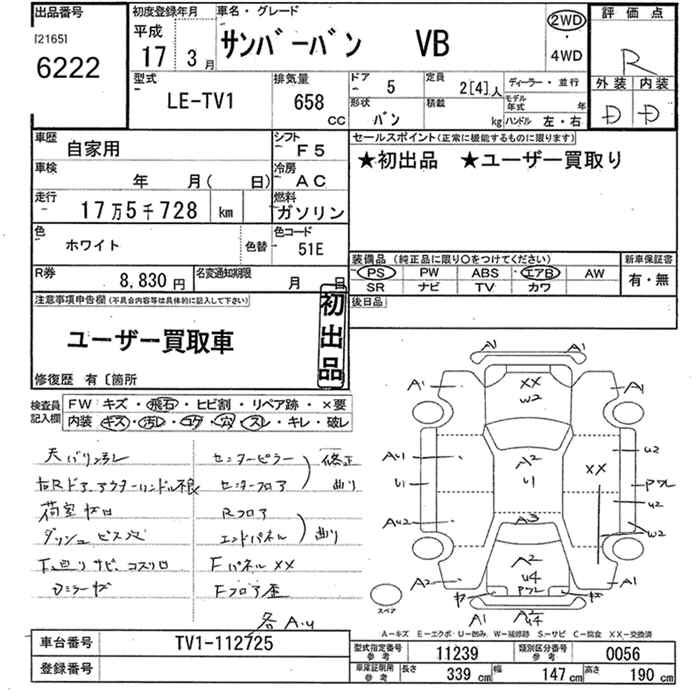 出品番号
[2165]
6222
初度登録年月
平成
17 3月
車名・グレード
サンバーバン VB
2WD
・
4WD
評価点
R
外装 内装
D D
型式
LE-TV1
排気量
658 CC
ドア 5
定員 2[4]人
ディーラー・並行
形状 バン
積載 kg
モデル年式 年
ハンドル 左・右
車歴
自家用
シフト
F5
セールスポイント(正常に機能するものに限ります)
★初出品 ★ユーザー買取り
車検
年 月( 日)
冷房
AC
走行
17万5千728 km
燃料
ガソリン
色
ホワイト
色替
色コード
51E
装備品 (純正品に限り○をつけてください)
PS PW ABS エアB AW
SR ナビ TV カワ
新車保証書
有・無
R券
8,830円
名変通知期限
月 日
後日品
注意事項申告欄(不具合内容等は具体的に記入して下さい)
ユーザー買取車
初出品
修復歴 有〔箇所
検査員記入欄
FW キズ・飛石・ヒビ割・リペア跡・×要
内装 キズ・汚レ・コゲ・穴・スレ・キレ・破レ
天バリ汚レ
右Rドアアウターハンドル不良
荷室
ダッシュ ビス穴
下回りサビ、コスリ
センターピラー
センターフロア
修正
曲り
Rフロア
エンドパネル
曲り
Fパネル XX
Fフロア歪
各A.U
A1 A1
A1 XX A1
W2
A2
U1
A3
A2
U4
A2 A1
A1
A2
U4
AU1
U1
AU2
XX
U2
U2
W2
スペア
A－キズ E－エクボ U－凹み W－補修跡 S－サビ C－腐食 XX－交換済
車台番号
TV1-112725
登録番号
型式指定番号 参考
11239
類別区分番号 参考
0056
車庫証明用 参考
長さ 339 cm
幅 147 cm
高さ 190 cm